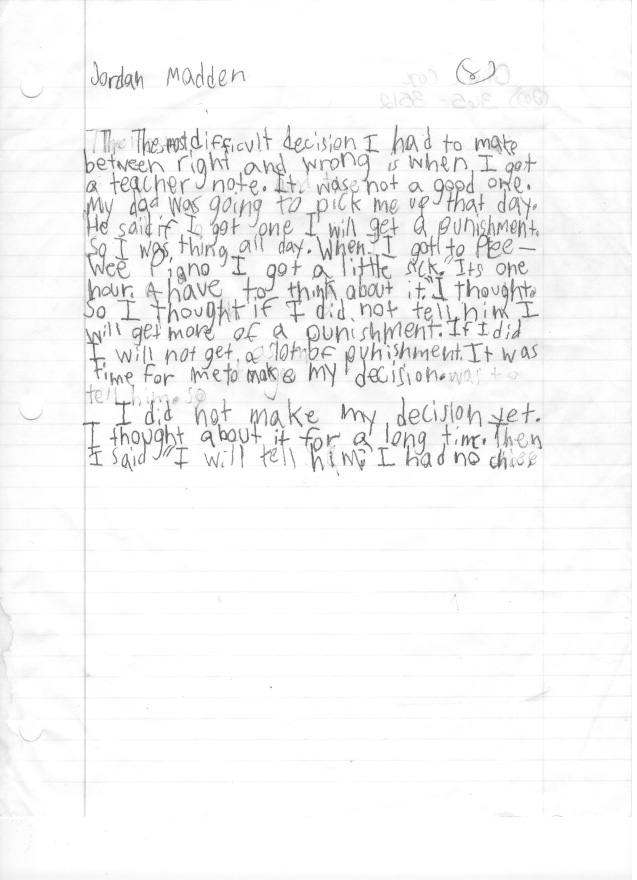 Jordan Madden
The most difficult decision I had to make
between right and wrong is when I got
a teacher note. It was not a good one.
My dad was going to pick me up that day.
He said if I got one I will get a punishment.
So I was thing all day. When I got to Pee-
Wee Piano I got a little sick. "Its one
hour. I have to think about it." I thought.
So I thought if I did not tell him I
will get more of a punishment. If I did
I will not get a lot of punishment. It was
time for me to make my decision.
I did not make my decision yet.
I thought about it for a long time. Then
I said "I will tell him." I had no